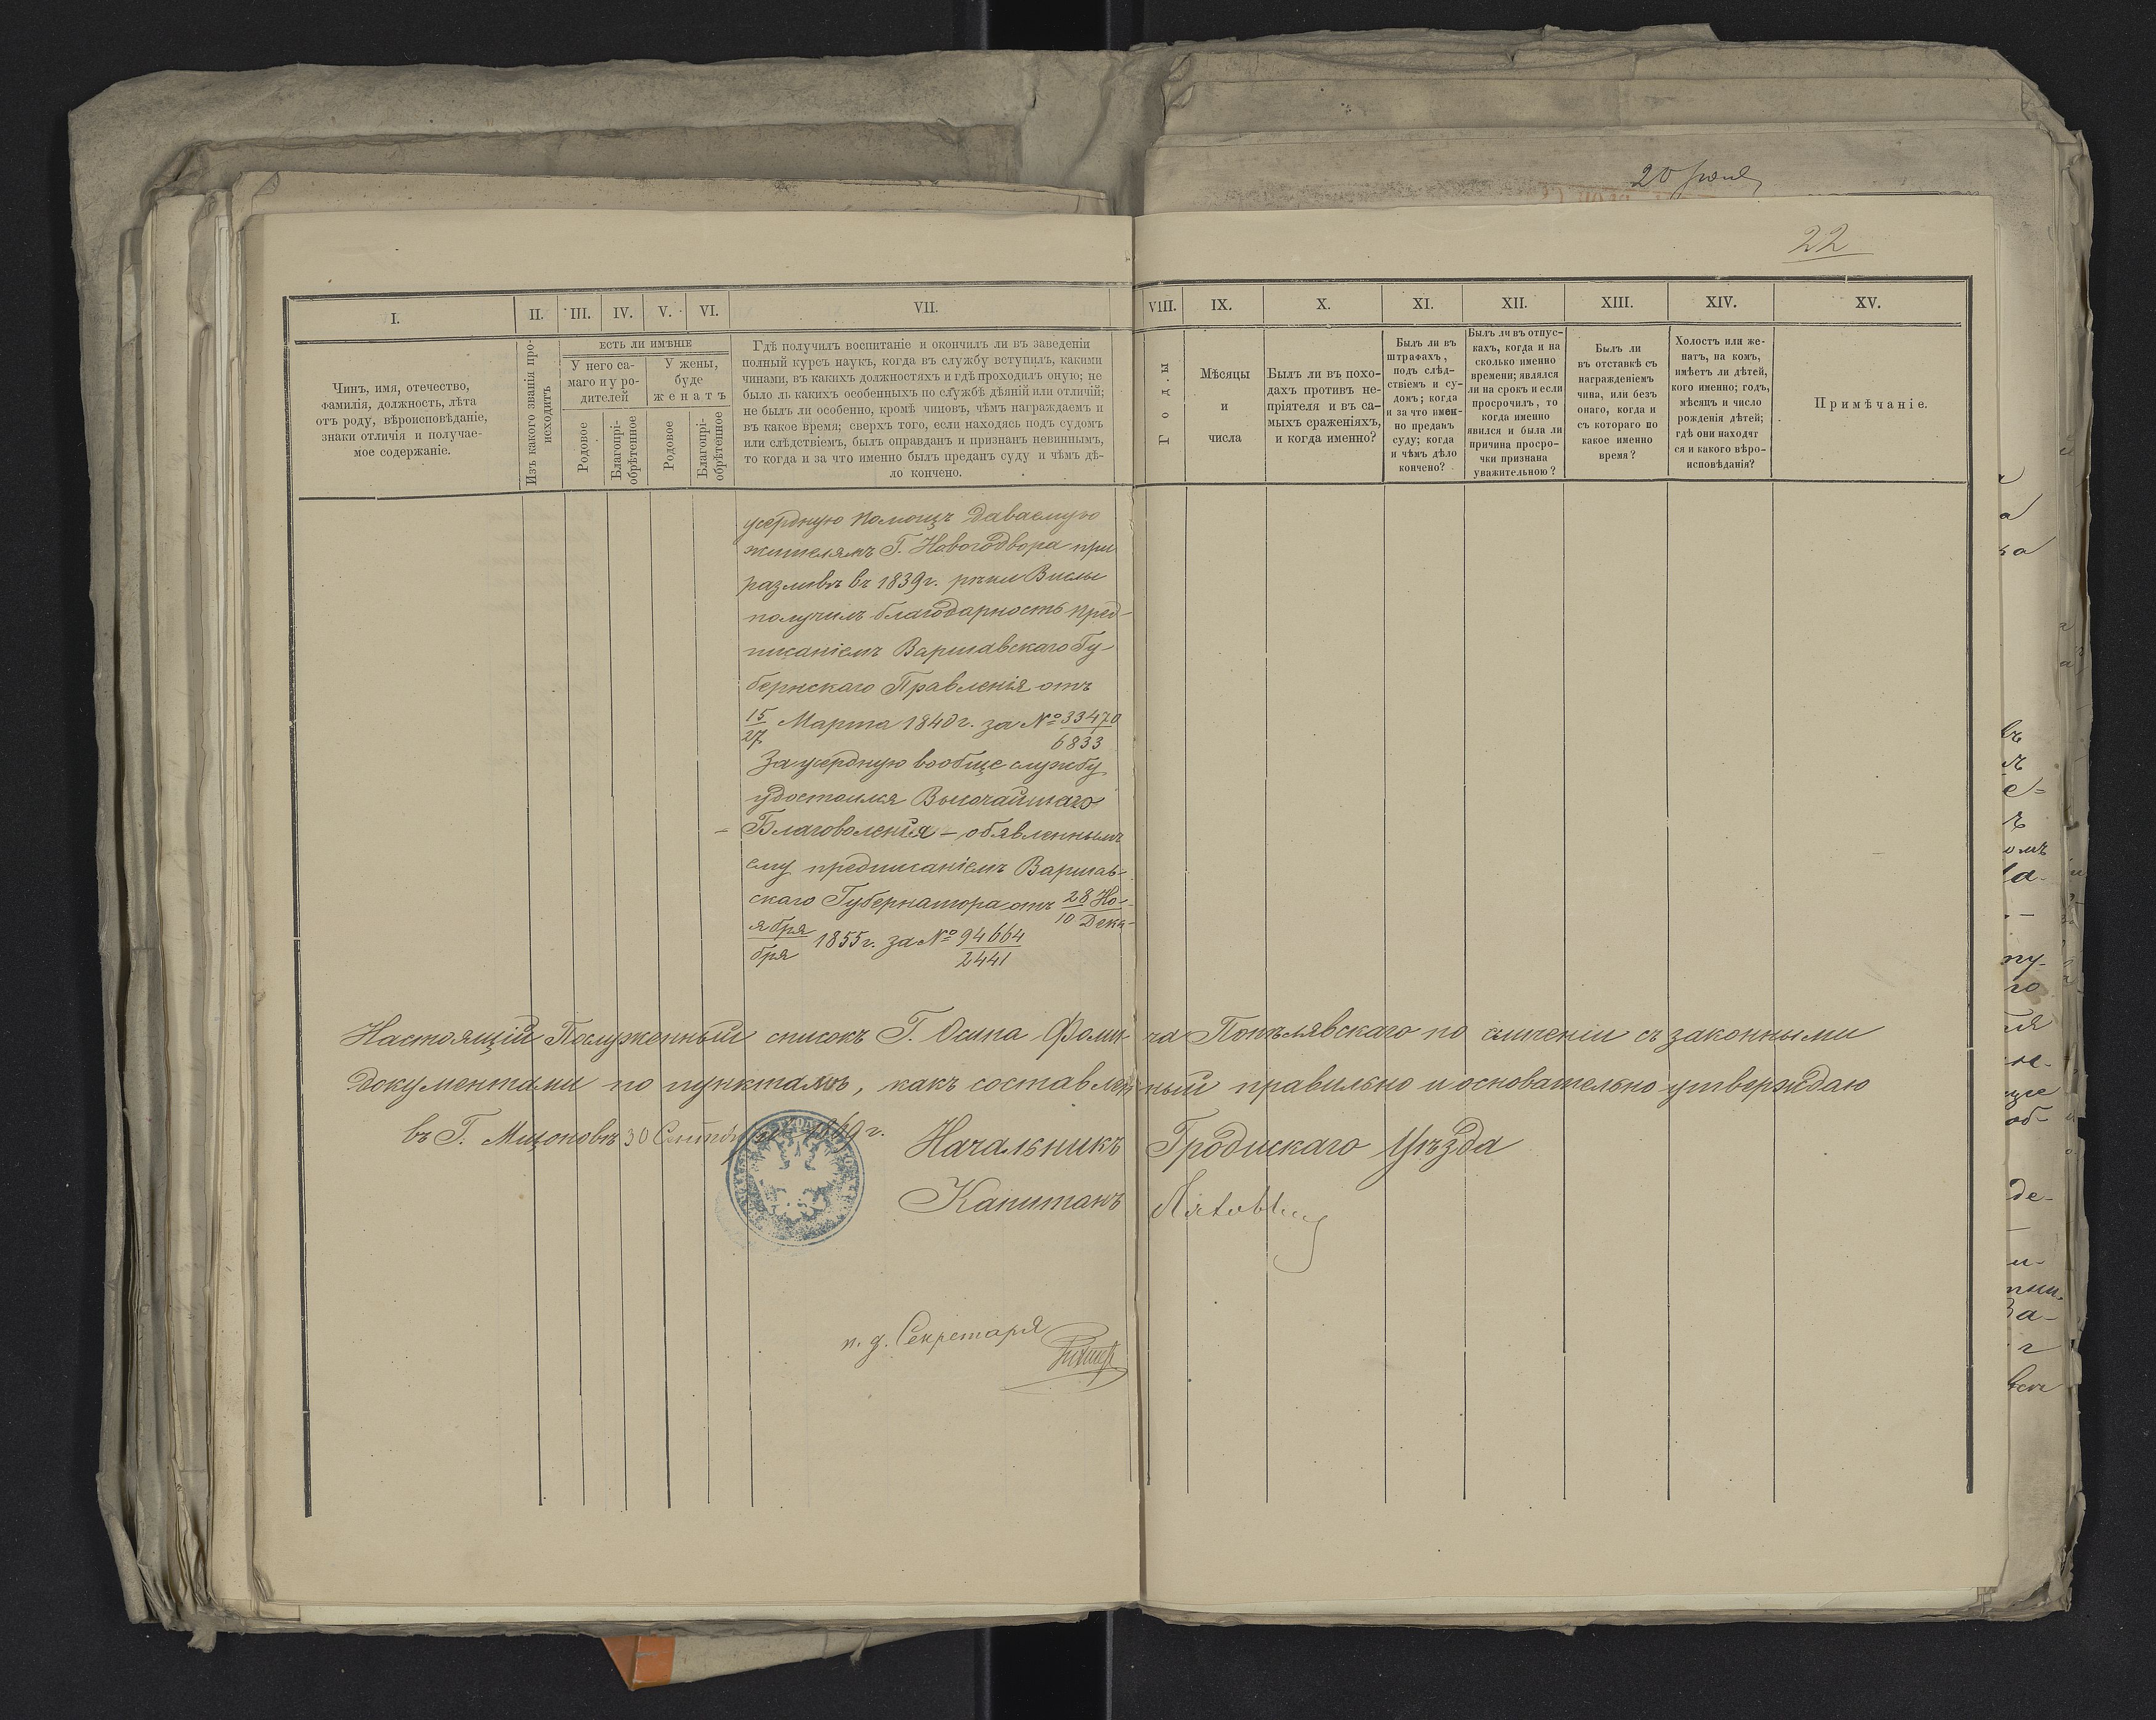 20
22
I.
II.
III.
IV.
V.
VI.
VII.
VIII.
IX.
X.
XI.
XII.
XIII.
XIV.
XV.
Чинъ, имя, отечество,
фамилія, должность, лѣта
отъ роду, вѣроисповѣданіе,
знаки отличія и получае-
мое содержаніе.
Изъ какого званія про-
исходитъ
ЕСТЬ ЛИ ИМѢНІЕ
У него са-
маго и у ро-
дителей
У жены,
буде
женатъ
Родовое
Благопрі-
обрѣтенное
Родовое
Благопрі-
обрѣтенное
Гдѣ получилъ воспитаніе и окончилъ ли въ заведеніи
полный курсъ наукъ, когда въ службу вступилъ, какими
чинами, въ какихъ должностяхъ и гдѣ проходилъ оную; не
было ль какихъ особенныхъ по службѣ дѣяній или отличій;
не былъ ли особенно, кромѣ чиновъ, чѣмъ награждаемъ и
въ какое время; сверхъ того, если находясь подъ судомъ
или слѣдствіемъ, былъ оправданъ и признанъ невиннымъ,
то когда и за что именно былъ преданъ суду и чѣмъ дѣ-
ло кончено.
Годы
Мѣсяцы
и
числа
Былъ ли въ похо-
дахъ противъ не-
пріятеля и въ са-
мыхъ сраженіяхъ,
и когда именно?
Былъ ли въ
штрафахъ,
подъ слѣд-
ствіемъ и су-
домъ; когда
и за что имен-
но преданъ
суду; когда
и чѣмъ дѣло
кончено?
Былъ ли въ отпус-
кахъ, когда и на
сколько именно
времени; являлся
ли на срокъ и если
просрочилъ, то
когда именно
явился и была ли
причина просро-
чки признана
уважительною?
Былъ ли
въ отставкѣ съ
награжденіемъ
чина, или безъ
онаго, когда и
съ котораго по
какое именно
время?
Холостъ или же-
натъ, на комъ,
имѣетъ ли дѣтей,
кого именно; годъ,
мѣсяцъ и число
рожденія дѣтей;
гдѣ они находят
ся и какого вѣро-
исповѣданія?
Примѣчаніе.
усердную помощь даваемую
жителямъ Г. Новогодвора при
разливѣ въ 1839 г. рѣки Вислы
получилъ благодарность пред-
писаніемъ Варшавскаго Гу-
бернскаго Правленія отъ
15/27 Марта 1840 г. за № 33470/6833
За усердную вообще службу
удостоился Высочайшаго
Благоволенія – объявленнымъ
ему предписаніемъ Варшав-
скаго Губернатора отъ 28 Но-/10 Дека-
ября/бря 1855 г. за № 94664/2441
Настоящій Послужный списокъ Г. Осипа Фоми-ча Попѣлявскаго по сличеніи съ законными
документами по пунктамъ, какъ составленный правильно и основательно утверждаю
въ Г. Мщоновѣ 30 Сентября 1869 г.
Начальникъ Гродискаго Уѣзда
Капитанъ
и. д. Секретаря